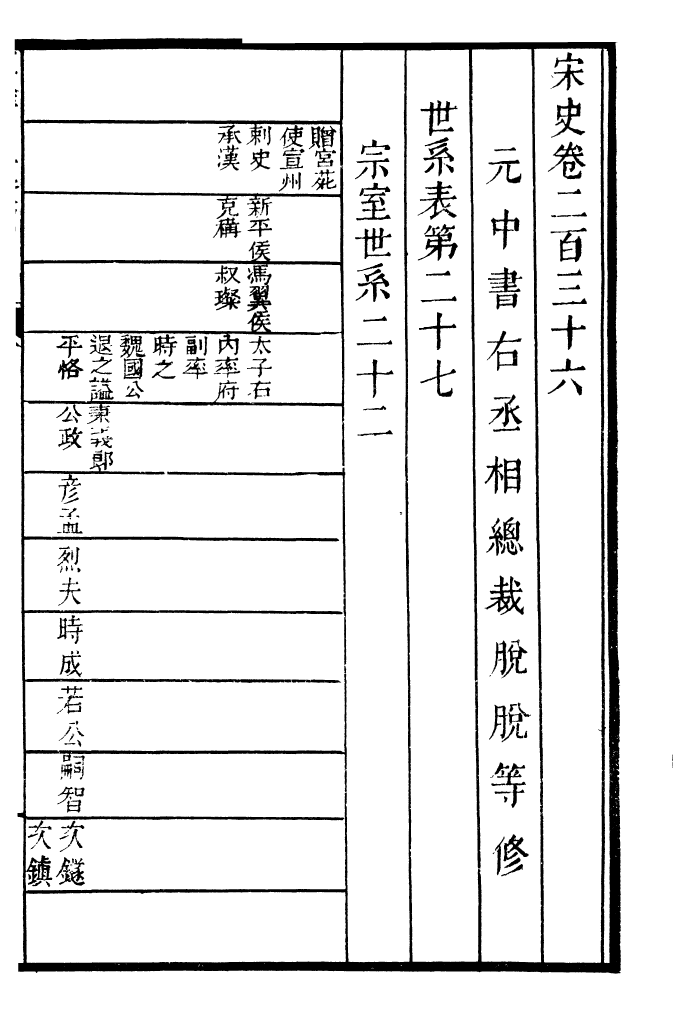 宋史卷二百三十六
元中書右丞相總裁脫脫等修
世系表第二十七
宗室世系二十二
贈宮苑
使宣州
刺史
承漢
新平侯
克構
馮翼侯
叔璨
太子右
內率府
副率
時之
魏國公
退之謚
平恪
秉義郎
公政
彥孟
烈夫
時成
若公
嗣智
次鐩
次鎮